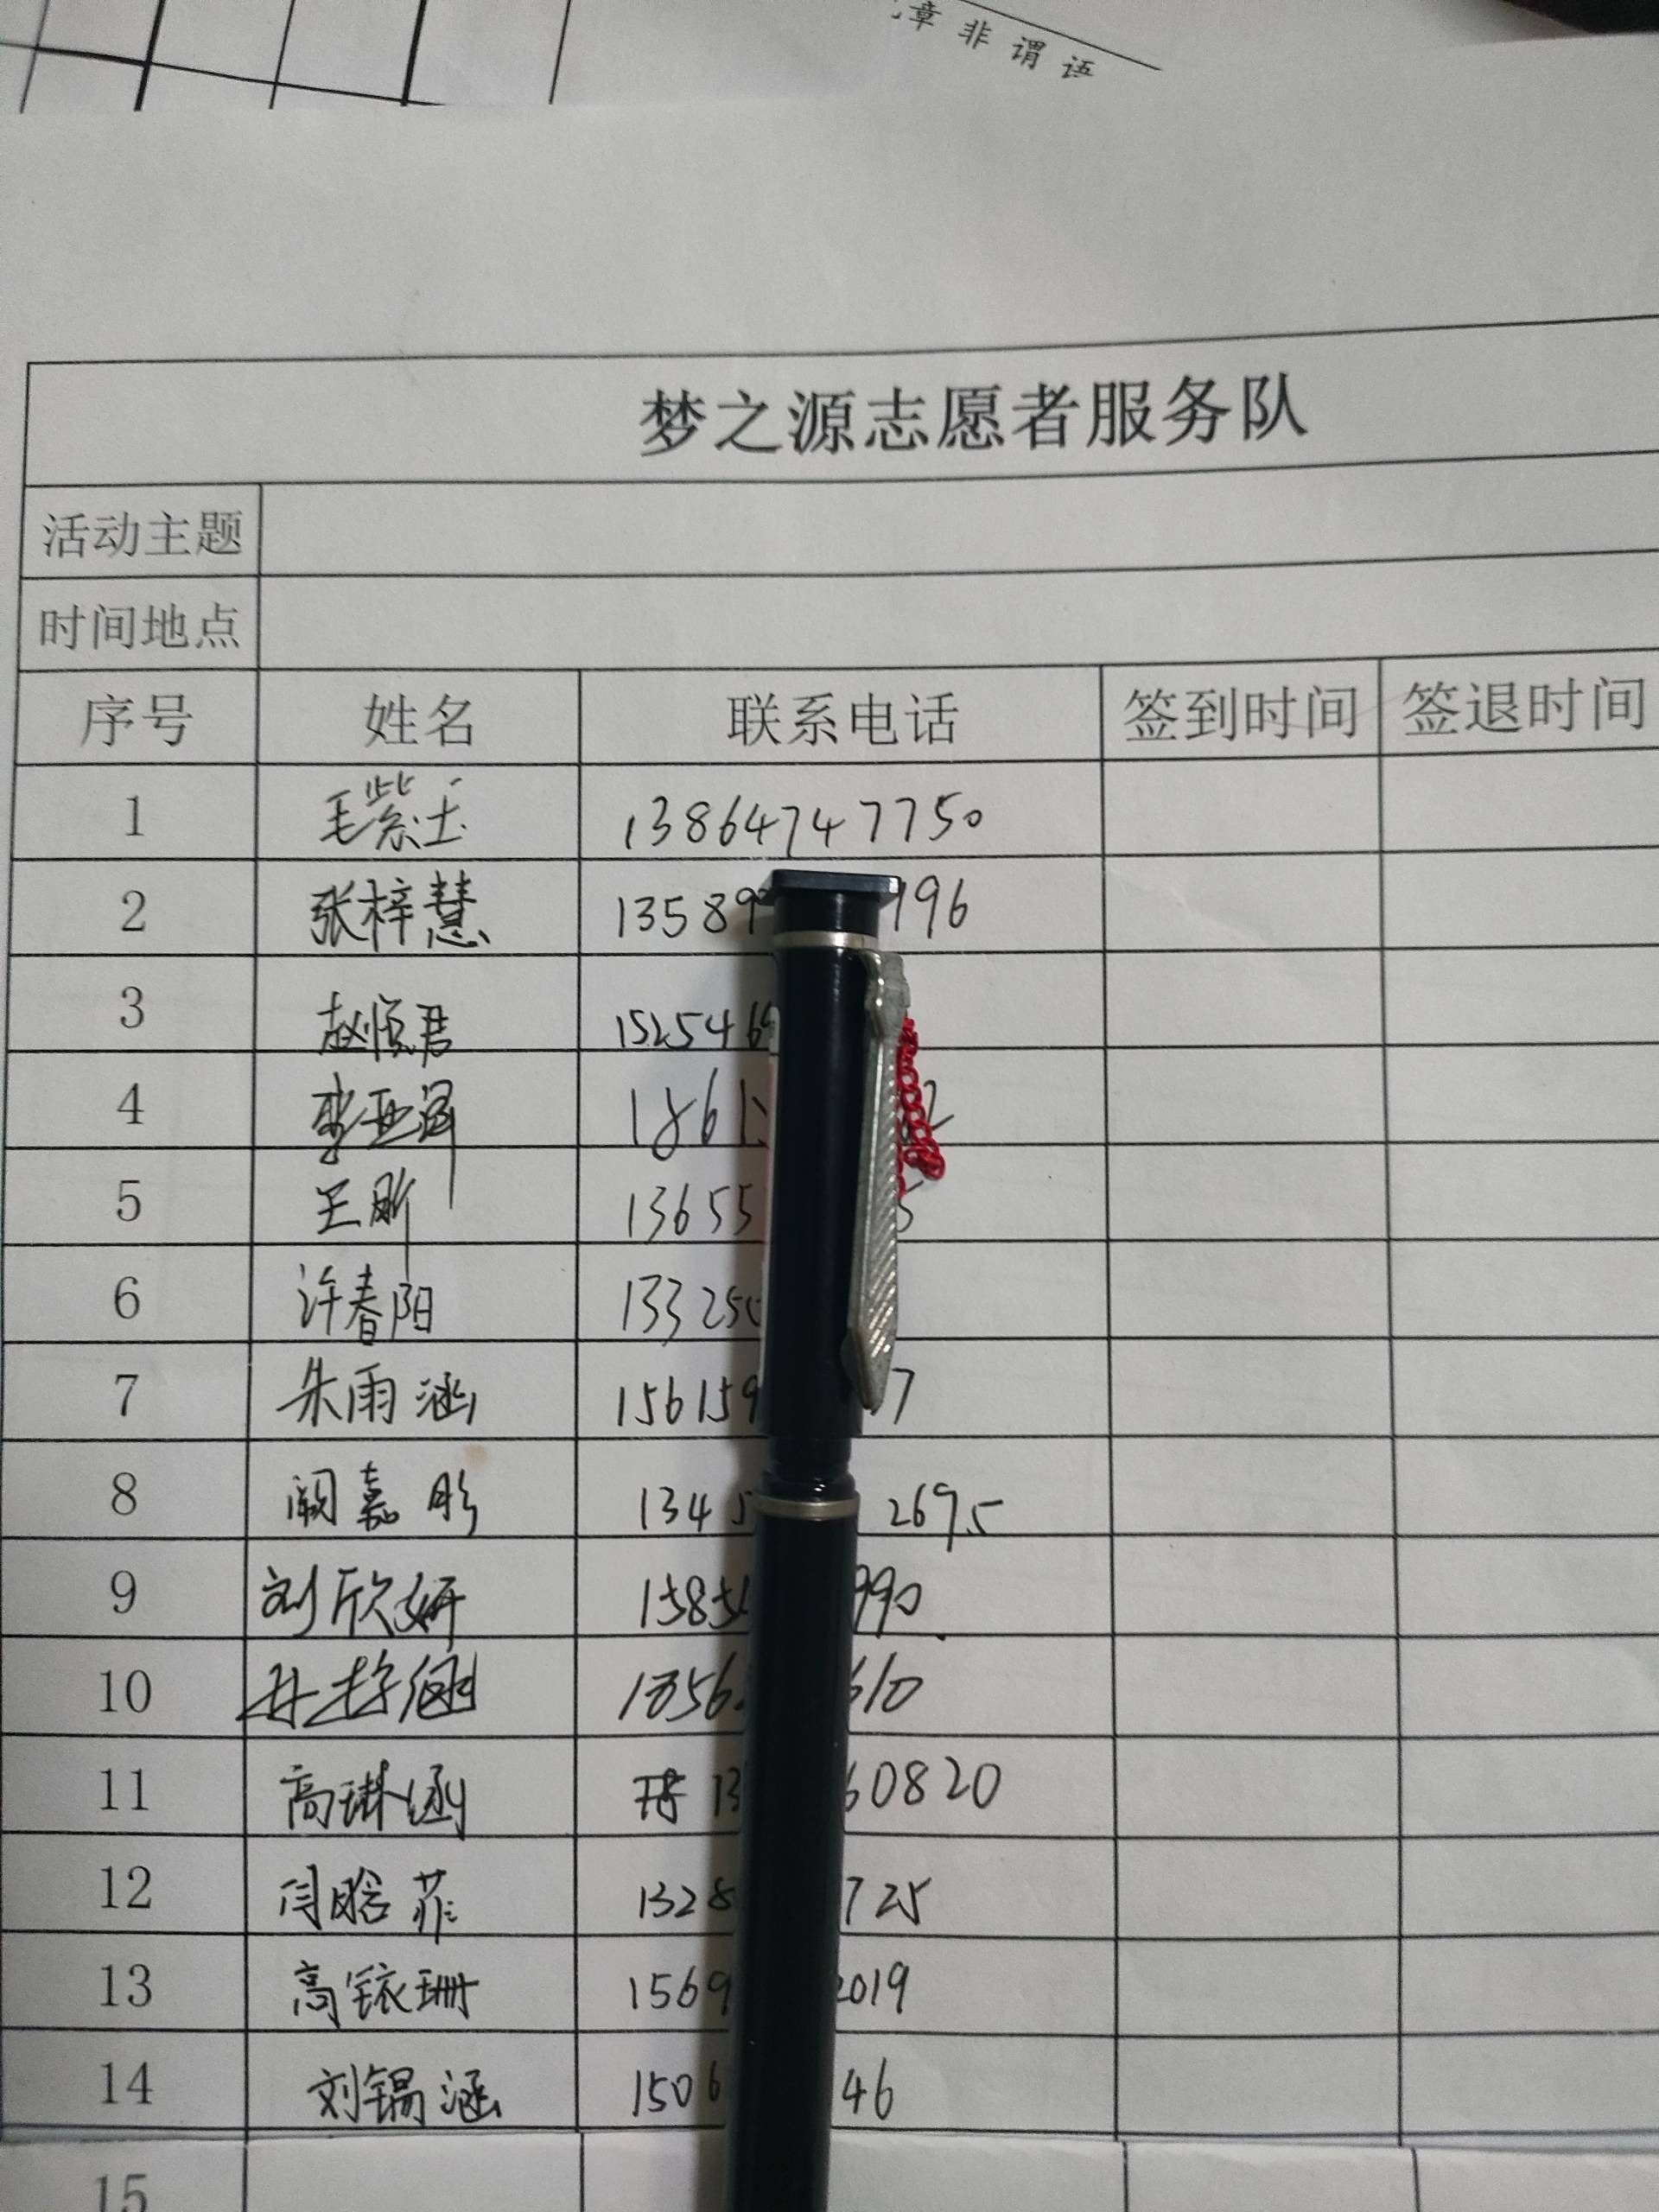 章 非 谓 语
梦之源志愿者服务队
活动主题
时间地点
序号 姓名 联系电话 签到时间 签退时间
1 毛紫玉 13864747750
2 张梓慧 13589 196
3 赵悦君 1525469
4 李亚阔 1861 2
5 王昕 13655 5
6 许春阳 13325
7 朱雨涵 156159 7
8 阚嘉彤 1345 2695
9 刘欣妍 1585 990
10 1856 610
11 高琳涵 13 60820
12 闫晗菲 1328 725
13 高铱珊 1569 2019
14 刘锡涵 1506 46
15